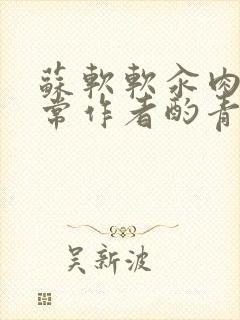 蘇軟軟汆肉
常作者酌青
吴新波